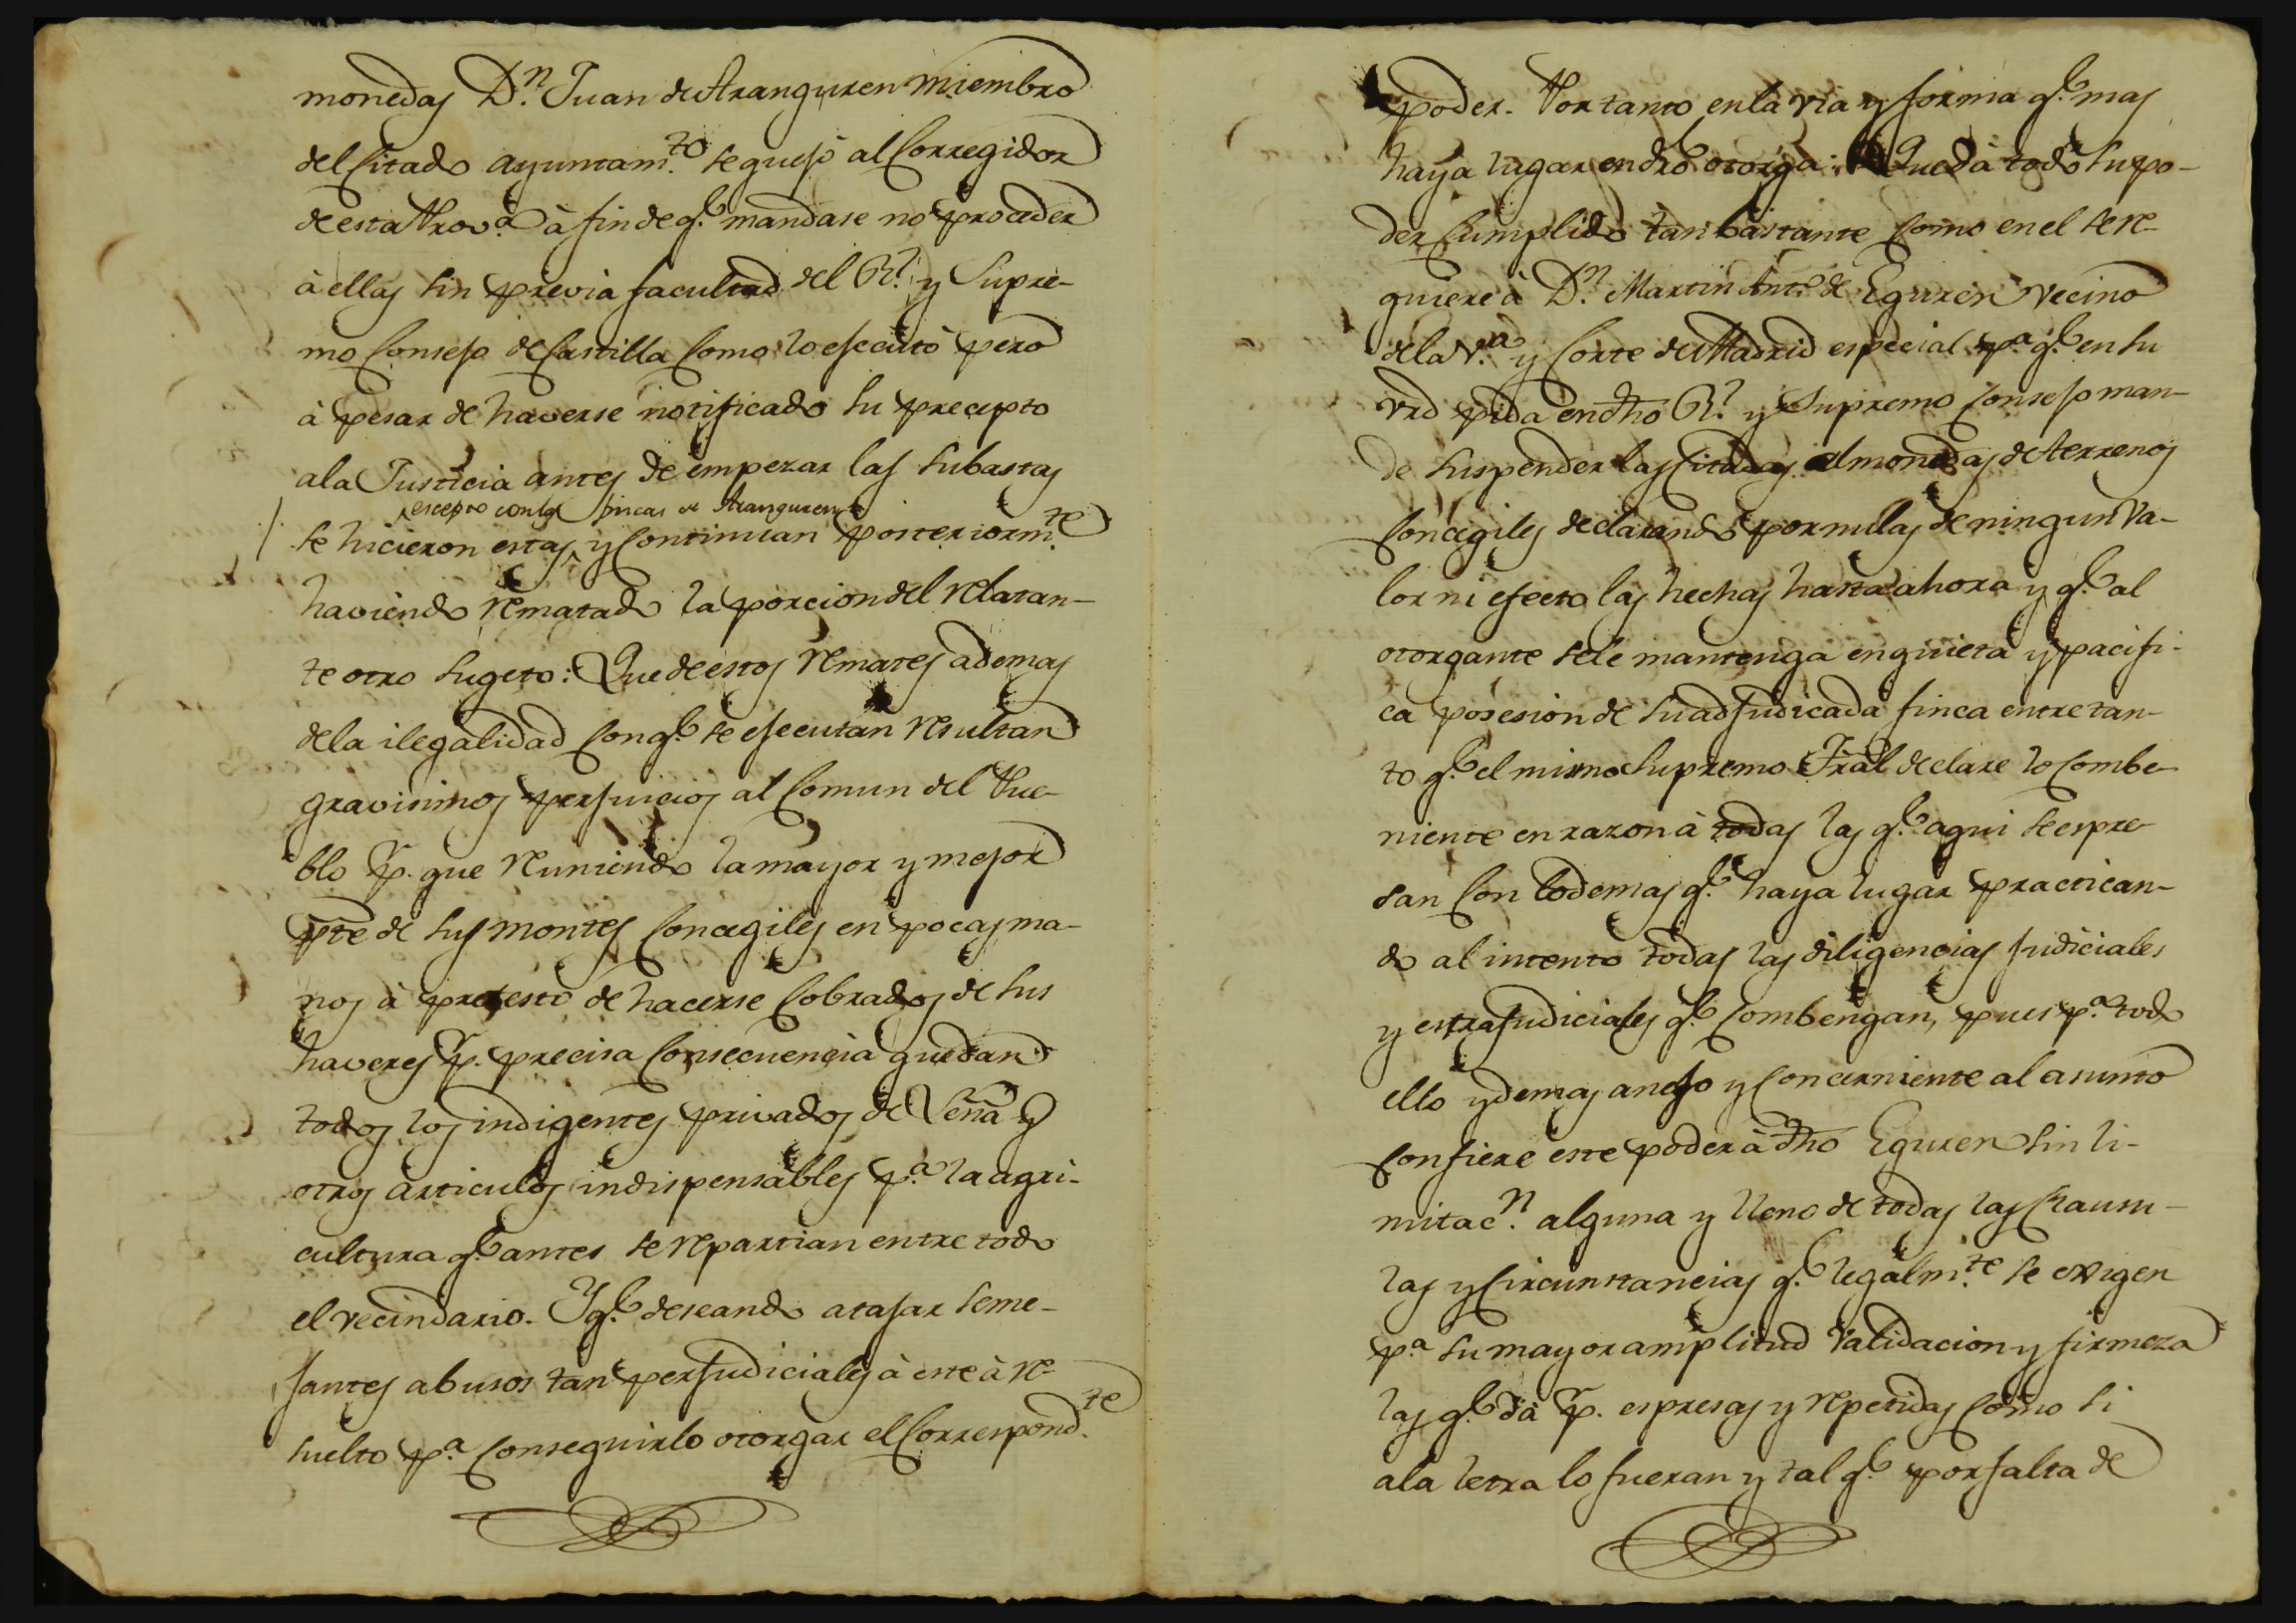 monedas Dn. Juan de Aranguren miembro
del Citado ayuntam.to se quejó al Corregidor
de esta Prov.a à fin de q.e mandase no proceder
à ellas sin previa facultad del Rl. y Supre-
mo Consejo de Castilla Como lo ejecutò pero
à pesar de haverse notificado su precepto
ala Justicia antes de empezar las subastas
escepto con las fincas de Aranguren
se hicieron estas, y Continuan posteriorm.te
haviendo rematado la porcion del relatan-
te otro sugeto: Que de estos remates ademas
dela ilegalidad Con q.e se ejecutan resultan
gravisimos perjuicios al Comun del Pue-
blo p.r que reuniendo la mayor y mejor
pte de sus montes Concegiles en pocas ma-
nos à pretesto de hacerse Cobrados de sus
haveres p.r precisa Consecuencia quedan
todos los indigentes privados de Leña y
otros articulos indispensables p.a la agri-
cultura q.e antes se repartian entre todo
el vecindario. Y q.e deseando atajar seme-
jantes abusos tan perjudiciales à este à re-
suelto p.a Conseguirlo otorgar el Correspond.te
poder. Por tanto en la via y forma q.e mas
haya lugar en dro otorga: Que dà todo su po-
der Cumplido tan bastante Como en el se re-
quiere à Dn. Martin Ant.o de Eguren vecino
dela V.a y Corte de Madrid especial p.a q.e en su
vrd pida en dho Rl. y Supremo Consejo man-
de suspender las Citadas almonedas de terrenos
Concegiles declarando por nulas de ningun va-
lor ni efecto las hechas hasta ahora y q.e al
otorgante se le mantenga en quieta y pacifi-
ca posesion de su adjudicada finca entre tan-
to q.e el mismo Supremo Tral declare lo Combe-
niente en razon à todas las q.e aqui se espre-
san Con lo demas q.e haya lugar practican-
do al intento todas las diligencias judiciales
y estrajudiciales q.e Combengan, pues p.a todo
ello y demas anejo y Concerniente al asunto
Confiere este poder à dho Eguren sin li-
mitac.n alguna y lleno de todas las Clausu-
las y Circunstancias q.e legalm.te se exigen
p.a su mayor amplitud validacion y firmeza
las q.e dà p.r espresas y repetidas Como si
ala letra lo fueran y tal q.e por falta de